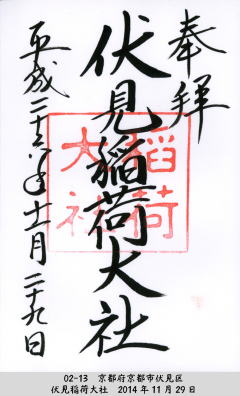 奉拝
伏見稲荷大社
平成二十六年十一月二十九日
稲荷
大社
02-13 京都府京都市伏見区
伏見稲荷大社 2014年11月29日